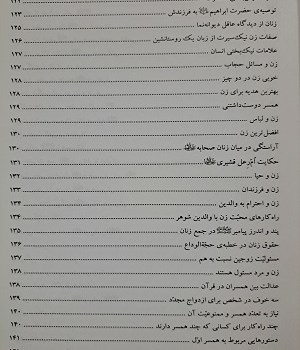 توصیه‌ی حضرت ابراهیم به فرزندش ۱۲۳
زنان از دیدگاه عاقل دیوانه‌نما ۱۲۵
صفات زن نیک‌سیرت از زبان یک روستانشین ۱۲۶
علامات نیک‌بختی انسان ۱۲۷
زن و مسائل حجاب ۱۲۷
خوبی زن در دو چیز ۱۲۸
بهترین هدیه برای زن ۱۲۸
همسر دوست‌داشتنی ۱۲۹
زن و لباس ۱۲۹
افضل‌ترین زن ۱۳۰
آراستگی در میان زنان صحابه ۱۳۰
حکایت اُمّ‌رعل قشیری ۱۳۱
زن و حیا ۱۳۲
زن و فرزندان ۱۳۳
زن و احترام به والدین ۱۳۴
راه‌کارهای محبّت زن با والدین شوهر ۱۳۴
پند و اندرز پیامبر در جمع زنان ۱۳۵
حقوق زنان در خطبه‌ی حجّة‌الوداع ۱۳۶
مسئولیّت زوجین نسبت به هم ۱۳۷
زن و مرد مسئول هستند ۱۳۸
عدالت بین همسران در قرآن ۱۳۸
سه خوف در شخص برای ازدواج مجدّد ۱۳۹
نیاز به تعداد همسر و ممنوعیّت آن ۱۴۰
چند راه‌کار برای کسانی که چند همسر دارند ۱۴۰
دستورهایی مربوط به همسر اوّل ۱۴۱